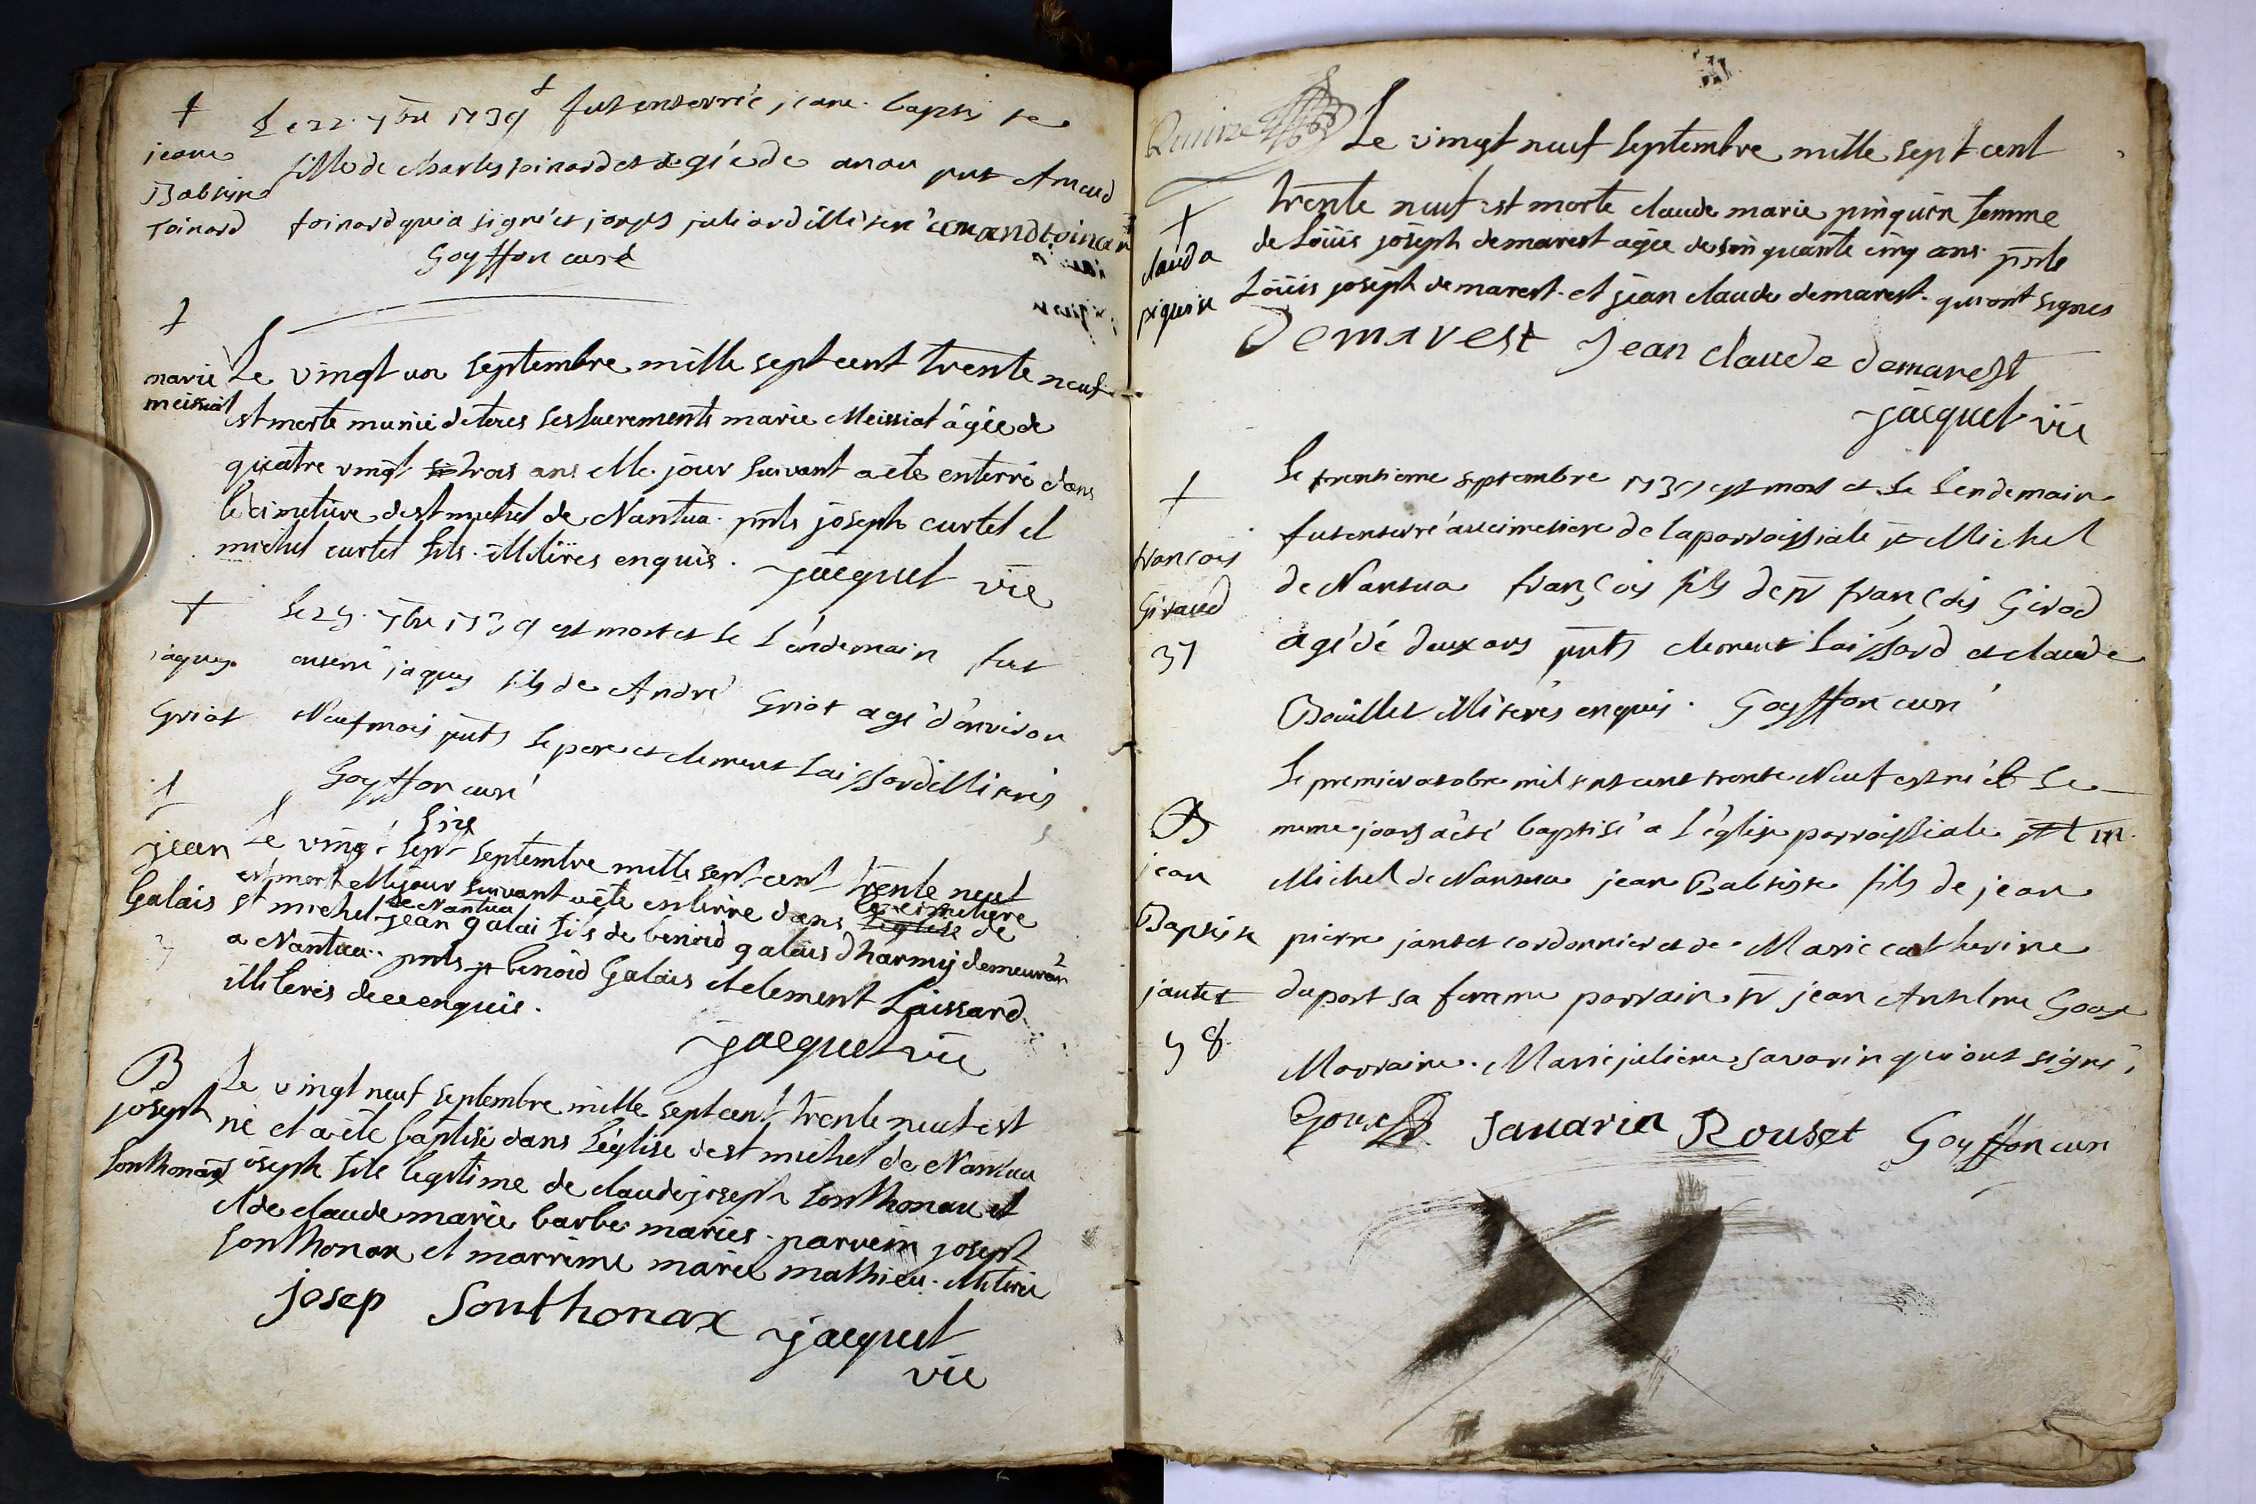 †
jeane
Babtiste
Toinard
Le 22. 7bre 1739 fut enterrée jeane baptiste
fille de Charles toinard et agée de an ou pnt Arnaud
toinard qui a signé et joseph juliard illiteré armand toinar
Goyffon curé
†
marie
meissiat
Le vingt un septembre mille sept cent trente neuf
est morte munie de tous ses sacrements marie Meissiat âgée de
quatre vingt trois ans et le jour suivant a ete enterré dans
le cimetiere de st michel de Nantua. pnts joseph curtet et
michel curtet fils. illiteres enquis. jacquet vic
†
jaques
Griot
Le 25. 7bre 1739 est mort et le l'endemain fut
enterré jaques fils de André Griot agé d'environ
Neuf mois pnts le pere et clement Laissard illiterés
Goyffon curé
†
jean
Galais
Le vingt sept six septembre mille sept cent trente neuf
est mort et le jour suivant a été enterre dans l'église le cimetiere de
st michel de Nantua jean galai fils de benoid galais d'harmij demeurant
a Nantua. pnts benoid Galais et clement Laissard
illiterés de ce enquis.
jacquet vic
B
joseph
sonthonax
Le vingt neuf septembre mille sept cent trente neuf est
né et a été baptisé dans l'église de st michel de Nantua
joseph fils legitime de claude joseph sonthonax et
de claude marie barbe mariés. parrein joseph
sonthonax et marreine marie mathieu. illiterée
josep Sonthonax jacquet
vic
Quinze
†
clauda
piquein
Le vingt neuf septembre mille sept cent
trente neuf est morte claude marie pinquien femme
de Loüis joseph demarest agée de sinquante cinq ans pnts
Loüis joseph demarest. et jean claude demarest. qui ont signés
Demarest Jean claude demarest
jacquet vic
†
francois
Giraud
37
Le trentieme septembre 1739 est mort et le lendemain
fut enterré au cimetiere de la parroissiale st Michel
de Nantua françois fils de Sr françois Girod
agé de deux ans pnts clement Laissard et claude
Bouillet illiterés enquis. Goyffon curé
B
jean
Baptiste
jantet
58
Le premier octobre mil sept cent trente Neuf est né et le
meme jour a été baptisé a l'église parroissiale st
Michel de Nantua jean Baptiste fils de jean
pierre jantet cordonnier et de Marie catherine
duport sa femme parrain Sr jean Anselme Goux
Marraine. Marie juliene savarin qui ont signé
Goux Savarin Rouset Goyffon curé